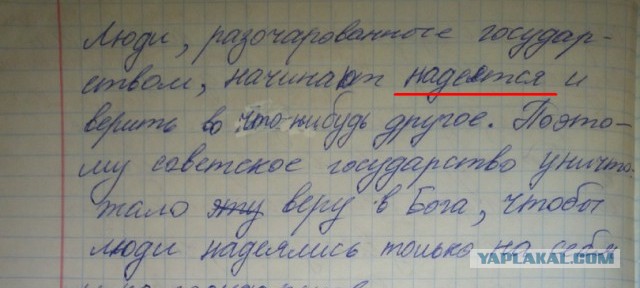 Люди, разочарованные государ-
ством, начинают надеятся и
верить во что-нибудь другое. Поэто-
му советское государство уничто-
жало эту веру в Бога, чтобы
люди надеялись только на себя
YAPLAKAL.COM